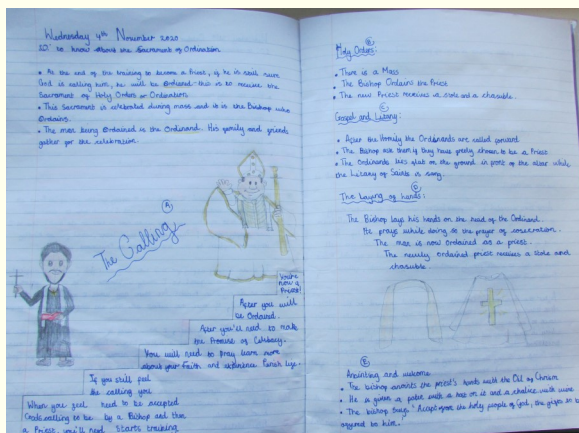 Wednesday 4th November 2020
LO: to know about the Sacrament of Ordination
• At the end of the training to become a Priest, if he is still sure
God is calling him, he will be Ordained - this is to receive the
Sacrament of Holy Orders or Ordination.
• This Sacrament is celebrated during mass and it is the Bishop who
Ordains.
• The man being Ordained is the Ordinand. His family and friends
gather for the celebration.
A
The Calling
You're
now a
Priest!
After you will
be Ordained.
After you'll need to make
the Promise of Celibacy.
You will need to pray, learn more
about your Faith and experience Parish life.
If you still feel
he calling you
need to be accepted
by a Bishop and then
Starts training
When you feel
God's calling to be
a Priest, you'll need
B
Holy Orders:
• There is a Mass
• The Bishop Ordains the Priest
• The new Priest receives a stole and a chasuble.
C
Gospel and Litany:
• After the Homily the Ordinands are called forward
• The Bishop ask them if they have freely chosen to be a Priest
• The Ordinands lies flat on the ground in front of the altar while
the Litany of Saints is sang.
D
The Laying of hands:
The Bishop lays his hands on the head of the Ordinand.
He prays while doing so the prayer of consecration.
The man is now ordained as a priest.
The newly ordained priest receives a stole and
chasuble.
E
Anointing and welcome
• The bishop anoints the priest's hands with the Oil of Chrism
• He is given a paten with a host on it and a chalice with wine
• The bishop says 'Accept from the holy people of God, the gifts to be
offered to him.'